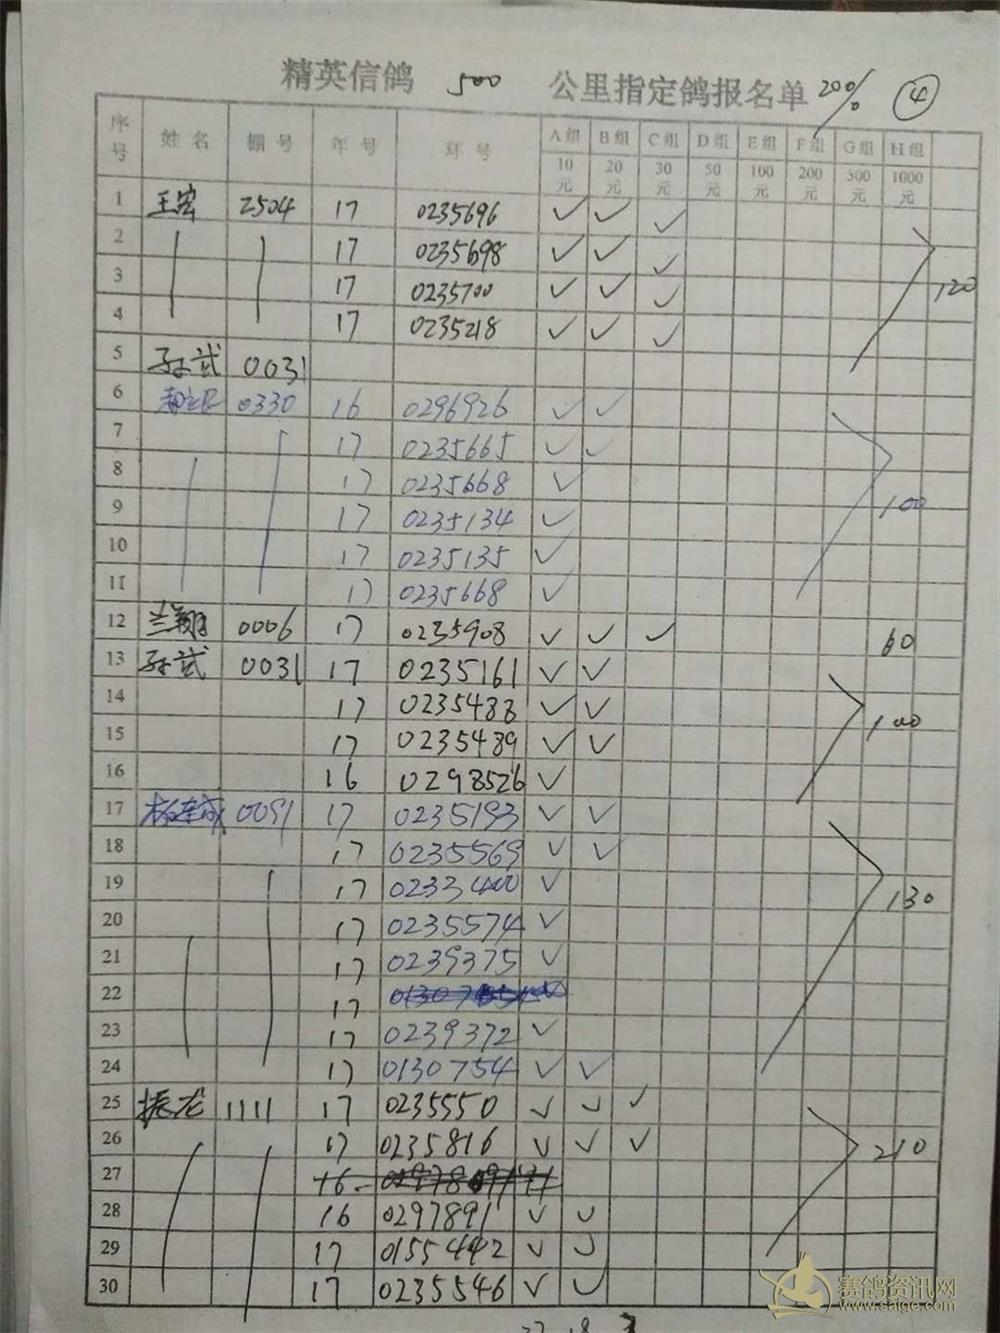 精英信鸽 500 公里指定鸽报名单 200% ④
序号 姓名 棚号 年号 环号 A组 B组 C组 D组 E组 F组 G组 H组
10元 20元 30元 50元 100元 200元 500元 1000元
1 王宏 2504 17 0235696 ✓ ✓ ✓
2 17 0235698 ✓ ✓ ✓
3 17 0235700 ✓ ✓ ✓ 120
4 17 0235218 ✓ ✓ ✓
5 孙斌 0031
6 0330 16 0296926 ✓ ✓
7 17 0235665 ✓ ✓
8 17 0235668 ✓
9 17 0235134 ✓ 100
10 17 0235135 ✓
11 17 0235668 ✓
12 兰翔 0006 17 0235908 ✓ ✓ ✓ 60
13 孙斌 0031 17 0235161 ✓ ✓
14 17 0235488 ✓ ✓ 100
15 17 0235489 ✓ ✓
16 16 0298526 ✓
17 0091 17 0235193 ✓ ✓
18 17 0235569 ✓ ✓
19 17 0233400 ✓ 130
20 17 0235574 ✓
21 17 0239375 ✓
22 17
23 17 0239372 ✓
24 17 0130754 ✓ ✓
25 振龙 1111 17 0235550 ✓ ✓ ✓
26 17 0235816 ✓ ✓ ✓ 210
27 16
28 16 0297891 ✓ ✓
29 17 0155442 ✓ ✓
30 17 0235546 ✓ ✓
赛鸽资讯网
www.saige.com